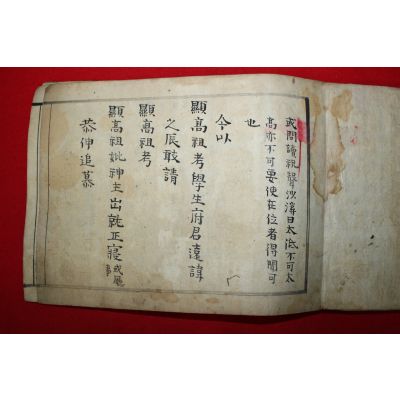 或問讀祝聲以溥曰太低不可太
高亦不可要使在位者得聞可
也
今以
顯高祖考學生府君遠諱
之辰敢請
顯高祖考
顯高祖妣神主出就正寢或廳事
恭伸追慕